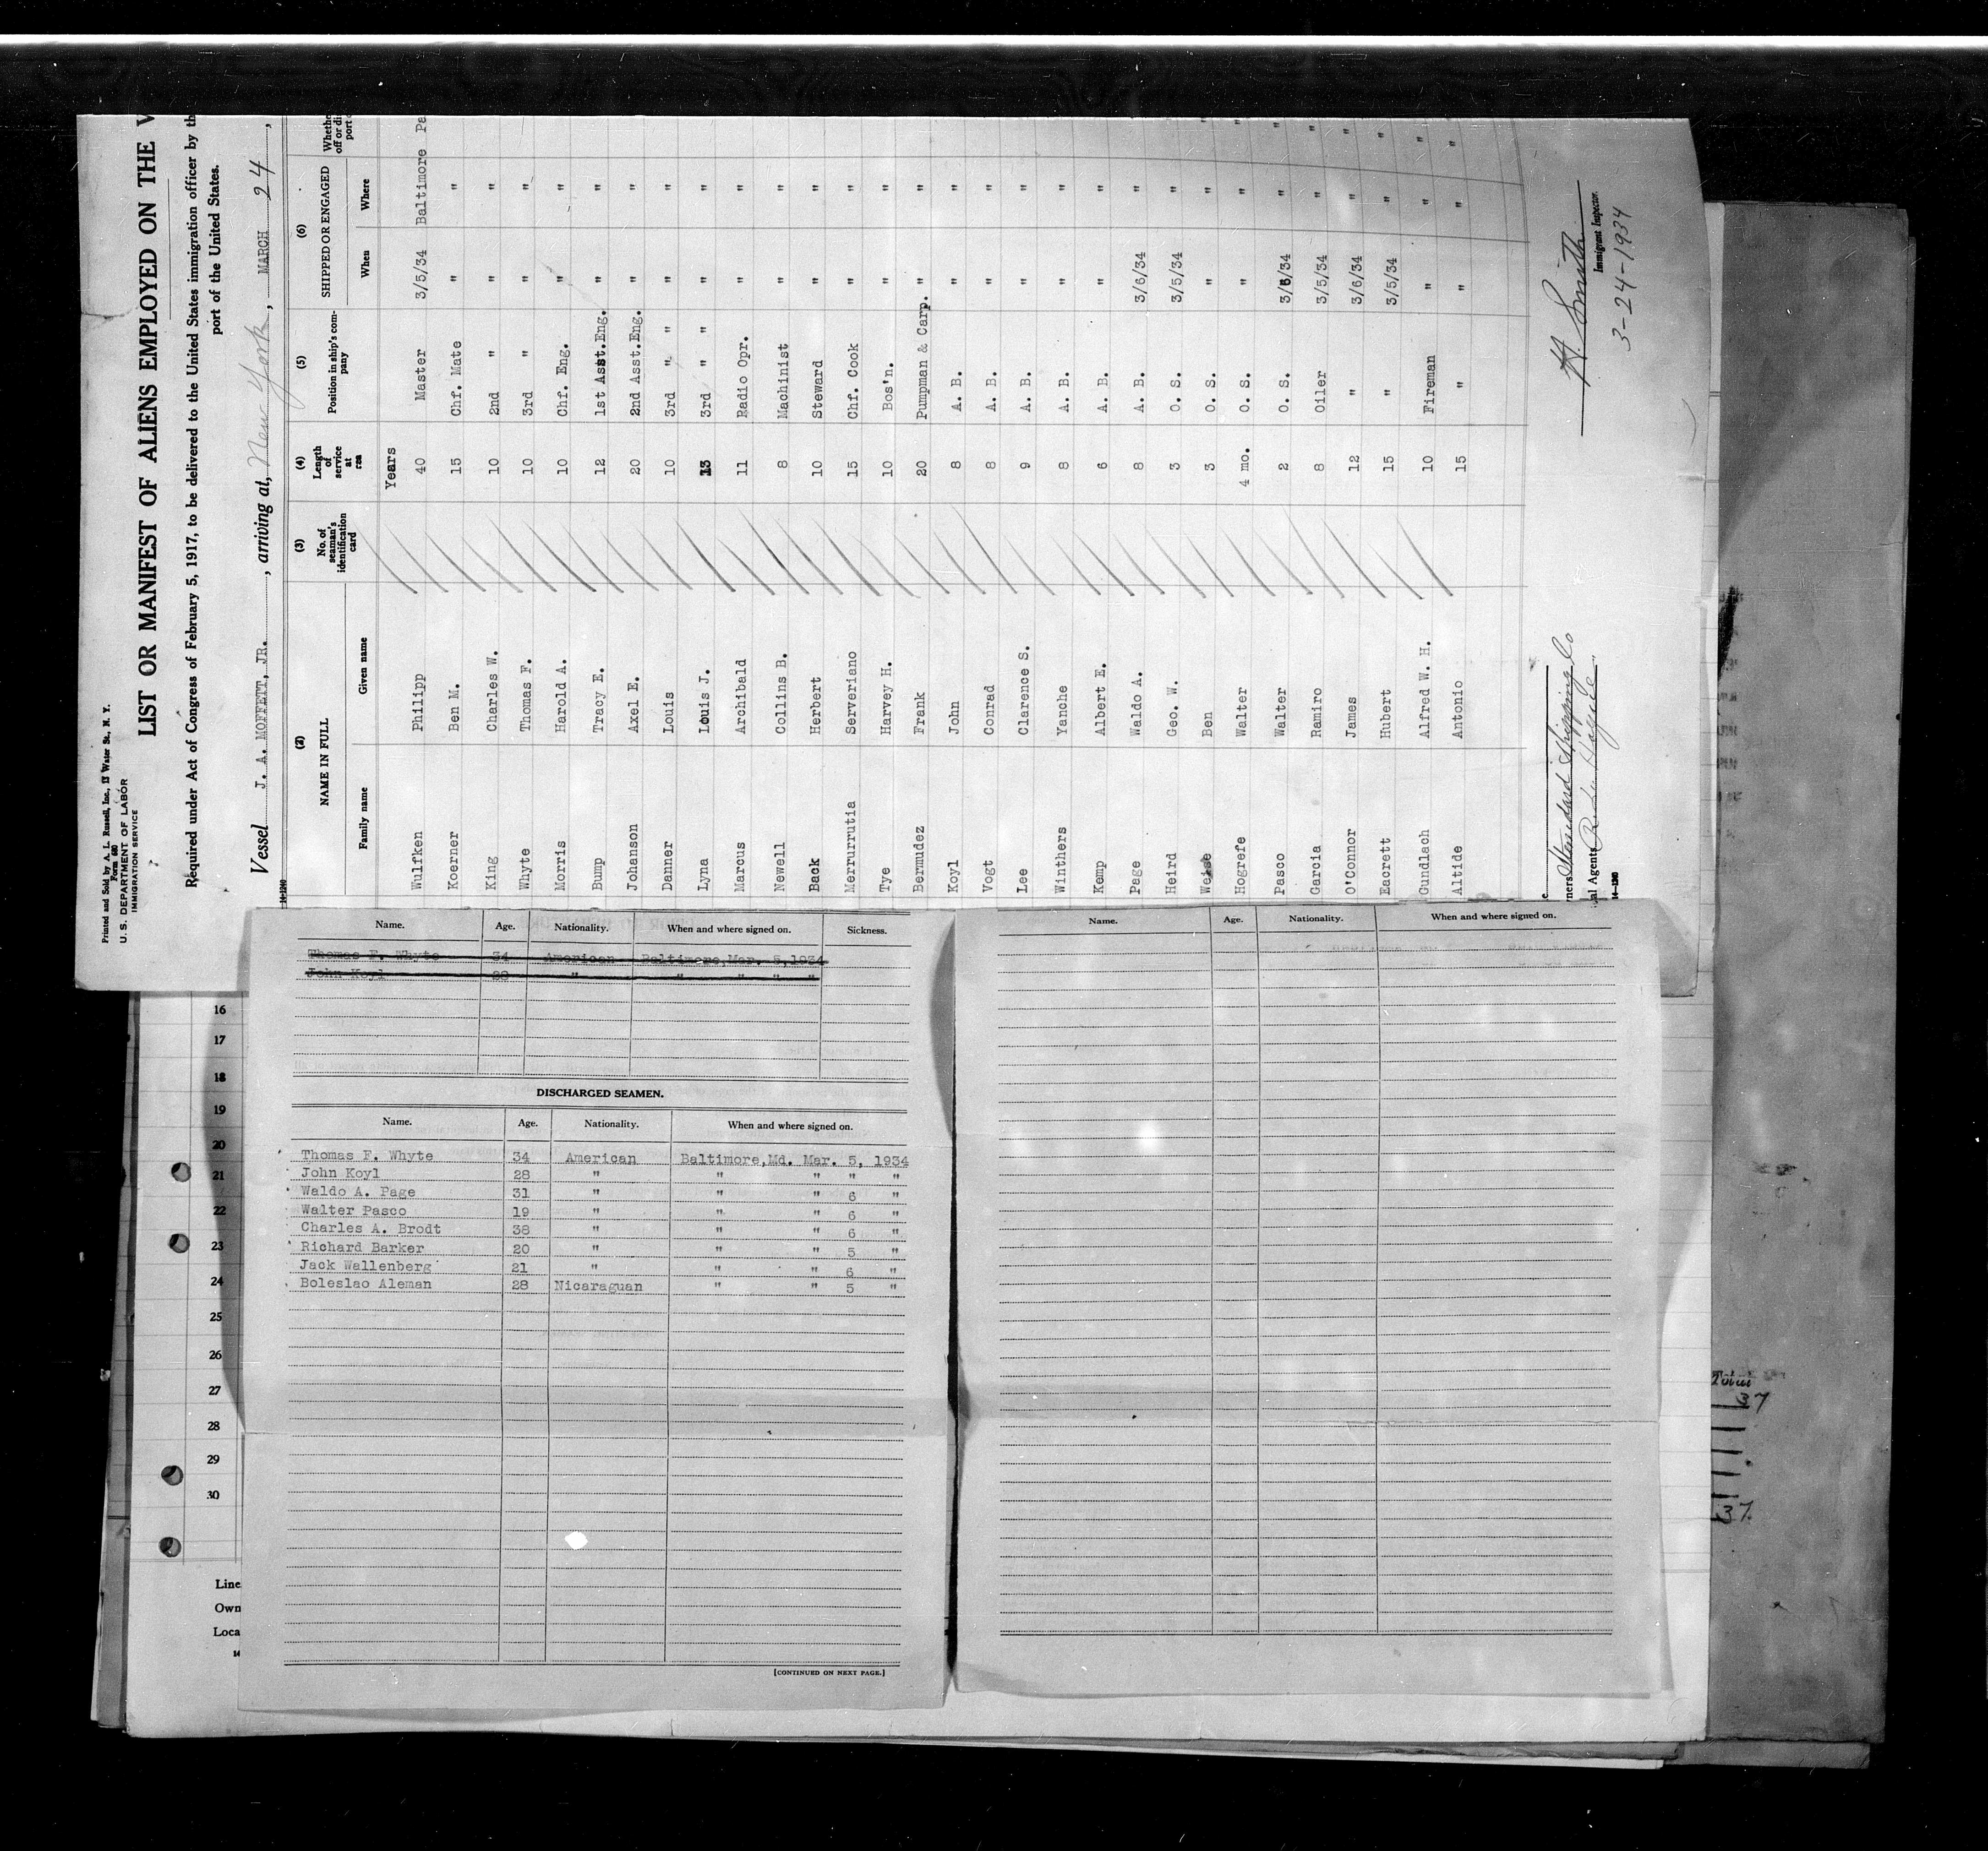 Printed and Sold by A. L. Russell, Inc., 13 Water St., N. Y.
Form 680
U. S. DEPARTMENT OF LABOR
IMMIGRATION SERVICE
LIST OR MANIFEST OF ALIENS EMPLOYED ON THE V
Required under Act of Congress of February 5, 1917, to be delivered to the United States immigration officer by th
port of the United States.
Vessel J. A. MOFFETT, JR. , arriving at, New York , MARCH 24 ,
14—1240
(2) (3) (4) (5) (6)
NAME IN FULL No. of seaman's identification card Length of service at sea Position in ship's company SHIPPED OR ENGAGED Whethe off or di port
Family name Given name When Where
Years
Wulfken Philipp 40 Master 3/5/34 Baltimore Pa
Koerner Ben M. 15 Chf. Mate " "
King Charles W. 10 2nd " " "
Whyte Thomas F. 10 3rd " " "
Morris Harold A. 10 Chf. Eng. " "
Bump Tracy E. 12 1st Asst.Eng. " "
Johanson Axel E. 20 2nd Asst.Eng. " "
Danner Louis 10 3rd " " " "
Lyna Louis J. 13 3rd " " " "
Marcus Archibald 11 Radio Opr. " "
Newell Collins B. 8 Machinist " "
Back Herbert 10 Steward " "
Merrurrutia Serveriano 15 Chf. Cook " "
Tye Harvey H. 10 Bos'n. " "
Bermudez Frank 20 Pumpman & Carp. " "
Koyl John 8 A. B. " "
Vogt Conrad 8 A. B. " "
Lee Clarence S. 9 A. B. " "
Winthers Yanche 8 A. B. " "
Kemp Albert E. 6 A. B. " "
Page Waldo A. 8 A. B. 3/6/34 "
Heird Geo. W. 3 O. S. 3/5/34 "
Weise Ben 3 O. S. " " "
Hogrefe Walter 4 mo. O. S. " " "
Pasco Walter 2 O. S. 3/6/34 " "
Garcia Ramiro 8 Oiler 3/5/34 " "
O'Connor James 12 " 3/6/34 " "
Eacrett Hubert 15 " 3/5/34 " "
Gundlach Alfred W. H. 10 Fireman " " "
Altide Antonio 15 " " " "
ners Standard Shipping Co
al Agents
14—1240
H. Smith
Immigrant Inspector.
3-24-1934
Name. Age. Nationality. When and where signed on. Sickness.
Thomas F. Whyte 34 American Baltimore,Mar. 5,1934
John Koyl 28 " " " "
DISCHARGED SEAMEN.
Name. Age. Nationality. When and where signed on.
Thomas F. Whyte 34 American Baltimore,Md. Mar. 5, 1934
John Koyl 28 " " " " "
Waldo A. Page 31 " " " 6 "
Walter Pasco 19 " " " 6 "
Charles A. Brodt 38 " " " 6 "
Richard Barker 20 " " " 5 "
Jack Wallenberg 21 " " " 6 "
Boleslao Aleman 28 Nicaraguan " " 5 "
[CONTINUED ON NEXT PAGE.]
Name. Age. Nationality. When and where signed on.
16
17
18
19
20
21
22
23
24
25
26
27
28
29
30
Line
Own
Loca
14
Total
37
37